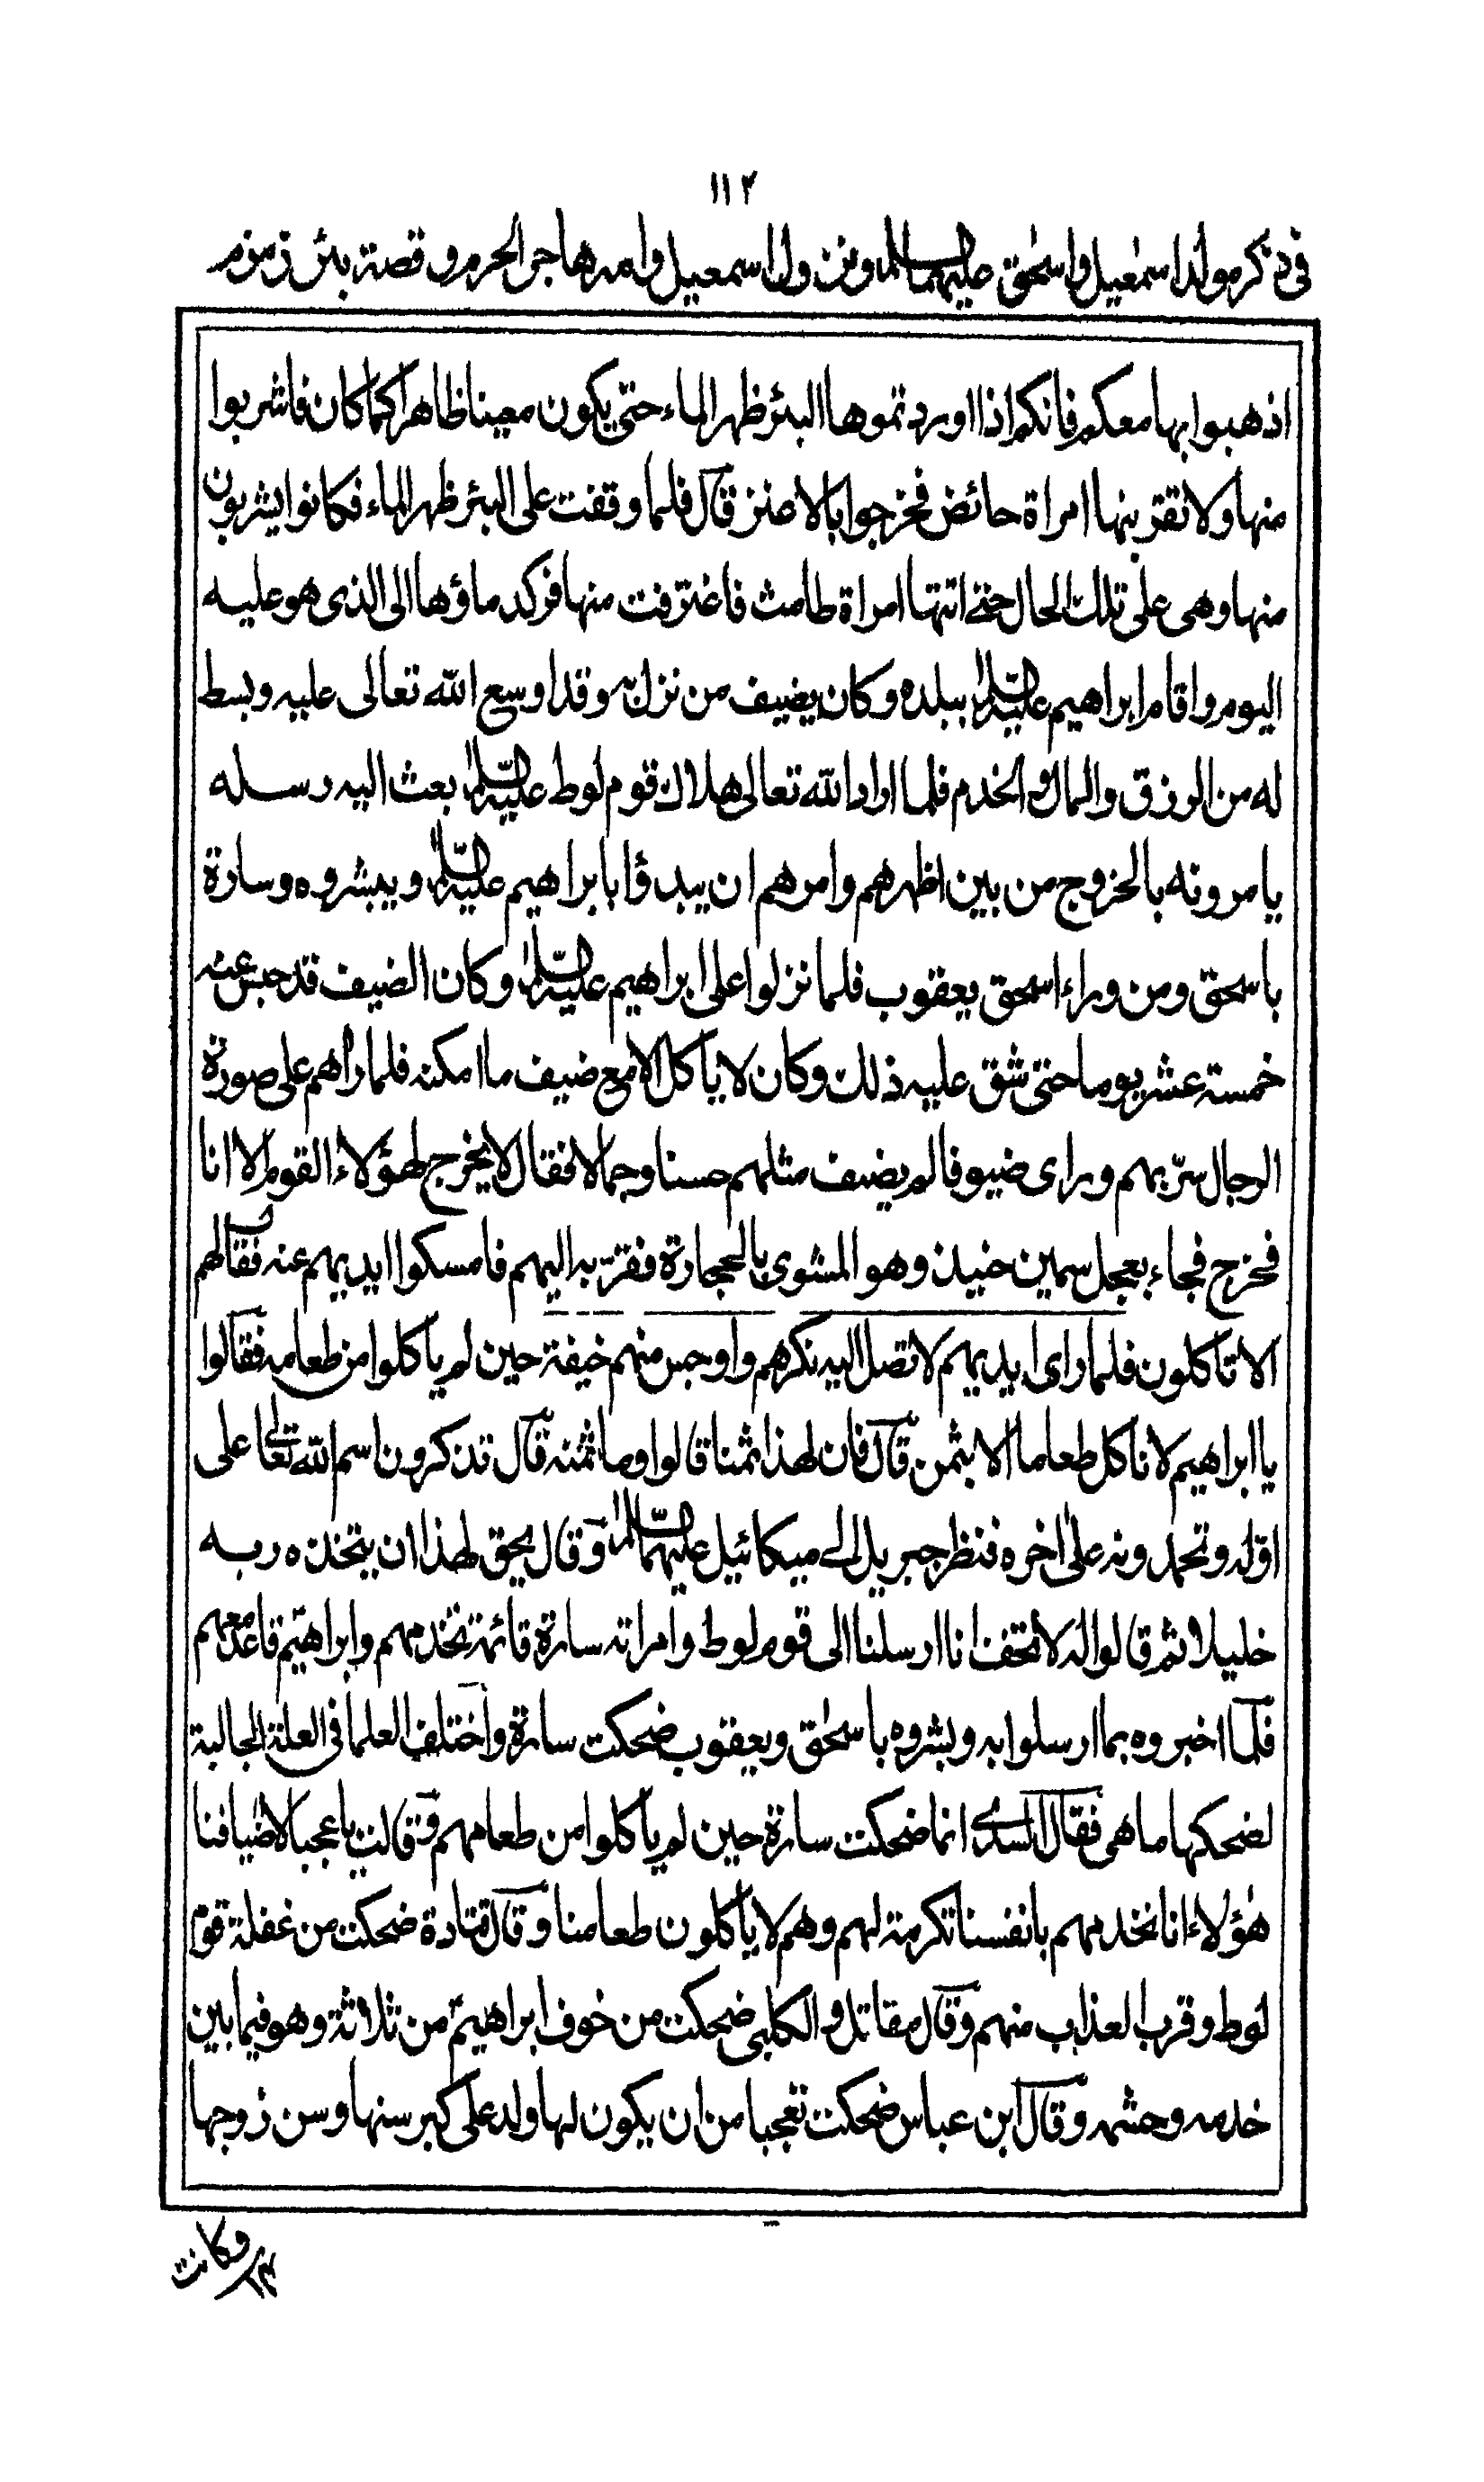 ١١٢
فى ذكر مولد اسمعيل واسحق عليهما السلام ونزول اسمعيل وامه هاجر الحرم وقصة بئر زمزم
اذهبوا بها معكم فانكم اذا اوردتموها البئر ظهر الماء حتى يكون معينا ظاهرا كما كان فاشربوا
منها ولا تقربنها امراة حائض فخرجوا بالاعنز قال فلما وقفت على البئر ظهر الماء فكانوا يشربون
منها وهى على تلك الحال حتى اتتها امراة طامث فاغترفت منها فركد ماؤها الى الذى هو عليه
اليوم واقام ابراهيم عليه السلام ببلده وكان يضيف من نزل به وقد اوسع الله تعالى عليه وبسط
له من الرزق والمال والخدم فلما اراد الله تعالى هلاك قوم لوط عليه السلام بعث اليه رسله
يامرونه بالخروج من بين اظهرهم وامرهم ان يبدؤا بابراهيم عليه السلام ويبشروه وسارة
باسحق ومن وراء اسحق يعقوب فلما نزلوا على ابراهيم عليه السلام وكان الضيف قد حبس عنه
خمسة عشر يوما حتى شق عليه ذلك وكان لا ياكل الا مع ضيف ما امكنه فلما راهم على صورة
الرجال سرّ بهم وراى ضيوفا لم يضف مثلهم حسنا وجمالا فقال لا يخرج لهؤلاء القوم الا انا
فخرج فجاء بعجل سمين حنيذ وهو المشوى بالحجارة فقربه اليهم فامسكوا ايديهم عنه فقال لهم
الا تاكلون فلما راى ايديهم لا تصل اليه نكرهم واوجس منهم خيفة حين لم ياكلوا من طعامه فقالوا
يا ابراهيم لا ناكل طعاما الا بثمن قال فان لهذا ثمنا قالوا وما ثمنه قال تذكرون اسم الله تعالى على
اوّله وتحمدونه على اخره فنظر جبريل الى ميكائيل عليهما السلام وقال يحق لهذا ان يتخذه ربه
خليلا ثم قالوا له لا تخف انا ارسلنا الى قوم لوط وامراته سارة قائمة تخدمهم وابراهيم قاعد معهم
فلما اخبروه بما ارسلوا به وبشروه باسحق ويعقوب ضحكت سارة واختلف العلما فى العلة الجالبة
لضحكها ما هى فقال السدى انما ضحكت سارة حين لم ياكلوا من طعامهم وقالت يا عجبا لاضيافنا
هؤلاء انا نخدمهم بانفسنا تكرمة لهم وهم لا ياكلون طعامنا وقال قتادة ضحكت من غفلة قوم
لوط وقرب العذاب منهم وقال مقاتل والكلبى ضحكت من خوف ابراهيم من ثلاثة وهو فيما بين
خدمه وحشمه وقال ابن عباس ضحكت تعجبا من ان يكون لها ولد على كبر سنها وسن زوجها
وكانت